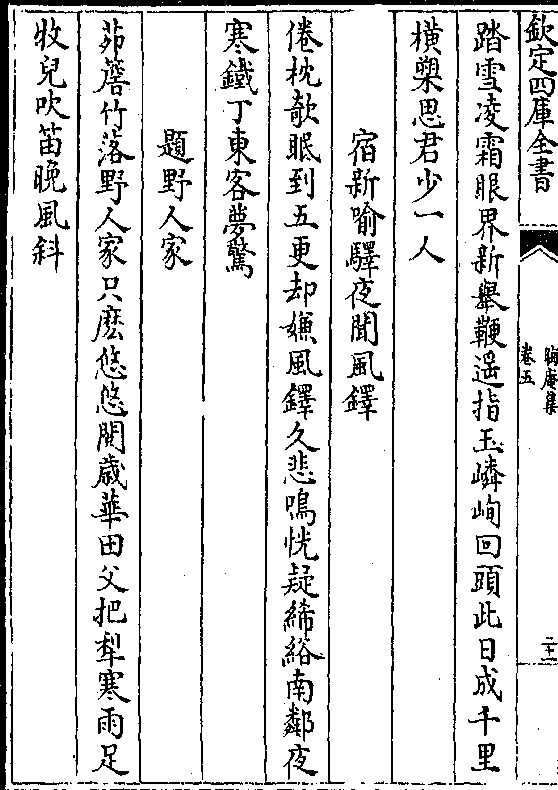 欽定四庫全書
卷五
二十一
踏雪凌霜眼界新舉鞭遥指玉嶙峋回頭此日成千里
橫槊思君少一人
宿新喻驛夜聞風鐸
倦枕欹眠到五更却嫌風鐸久悲鳴恍疑絺綌南鄰夜
寒鐵丁東客夢驚
題野人家
茆簷竹落野人家只麽悠悠閱歲華田父把犁寒雨足
牧兒吹笛晚風斜